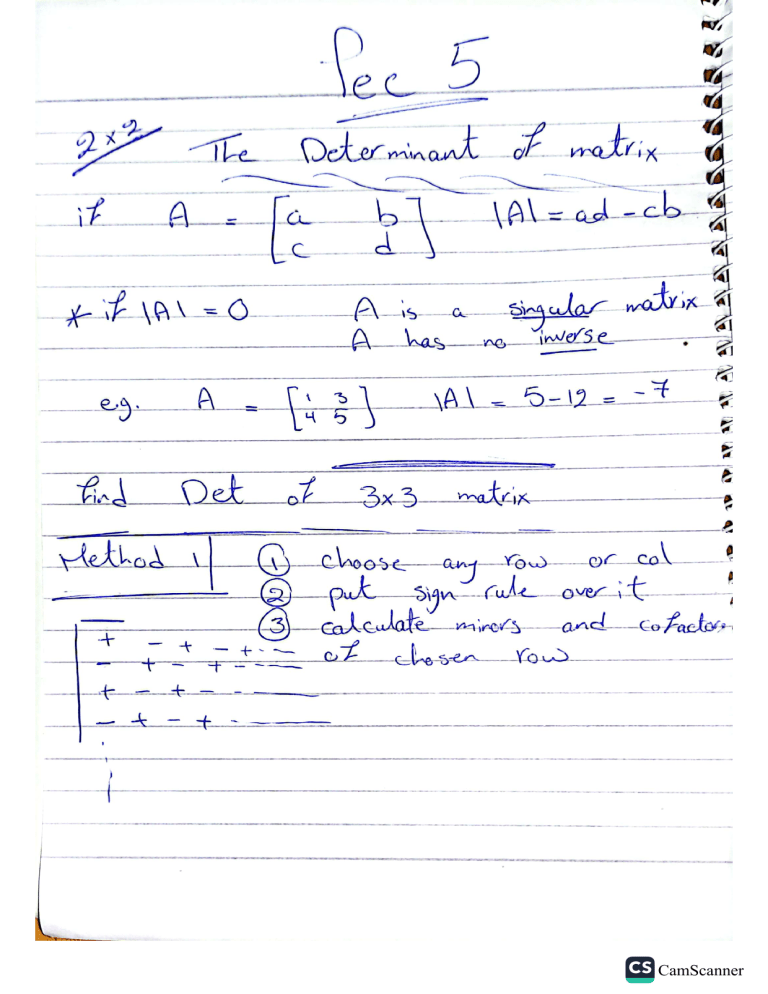 Lec 5
2x2 The Determinant of matrix
if A = [a b
c d] |A| = ad - cb
* if |A| = 0 A is a singular matrix
A has no inverse
e.g. A = [1 3
4 5] |A| = 5-12 = -7
find Det of 3x3 matrix
Method 1 ① choose any row or col
② put sign rule over it
③ calculate minors and cofactors
of chosen row
+ - + - + - -
- + - + - - - -
+ - + - -
- + - + -
CS CamScanner